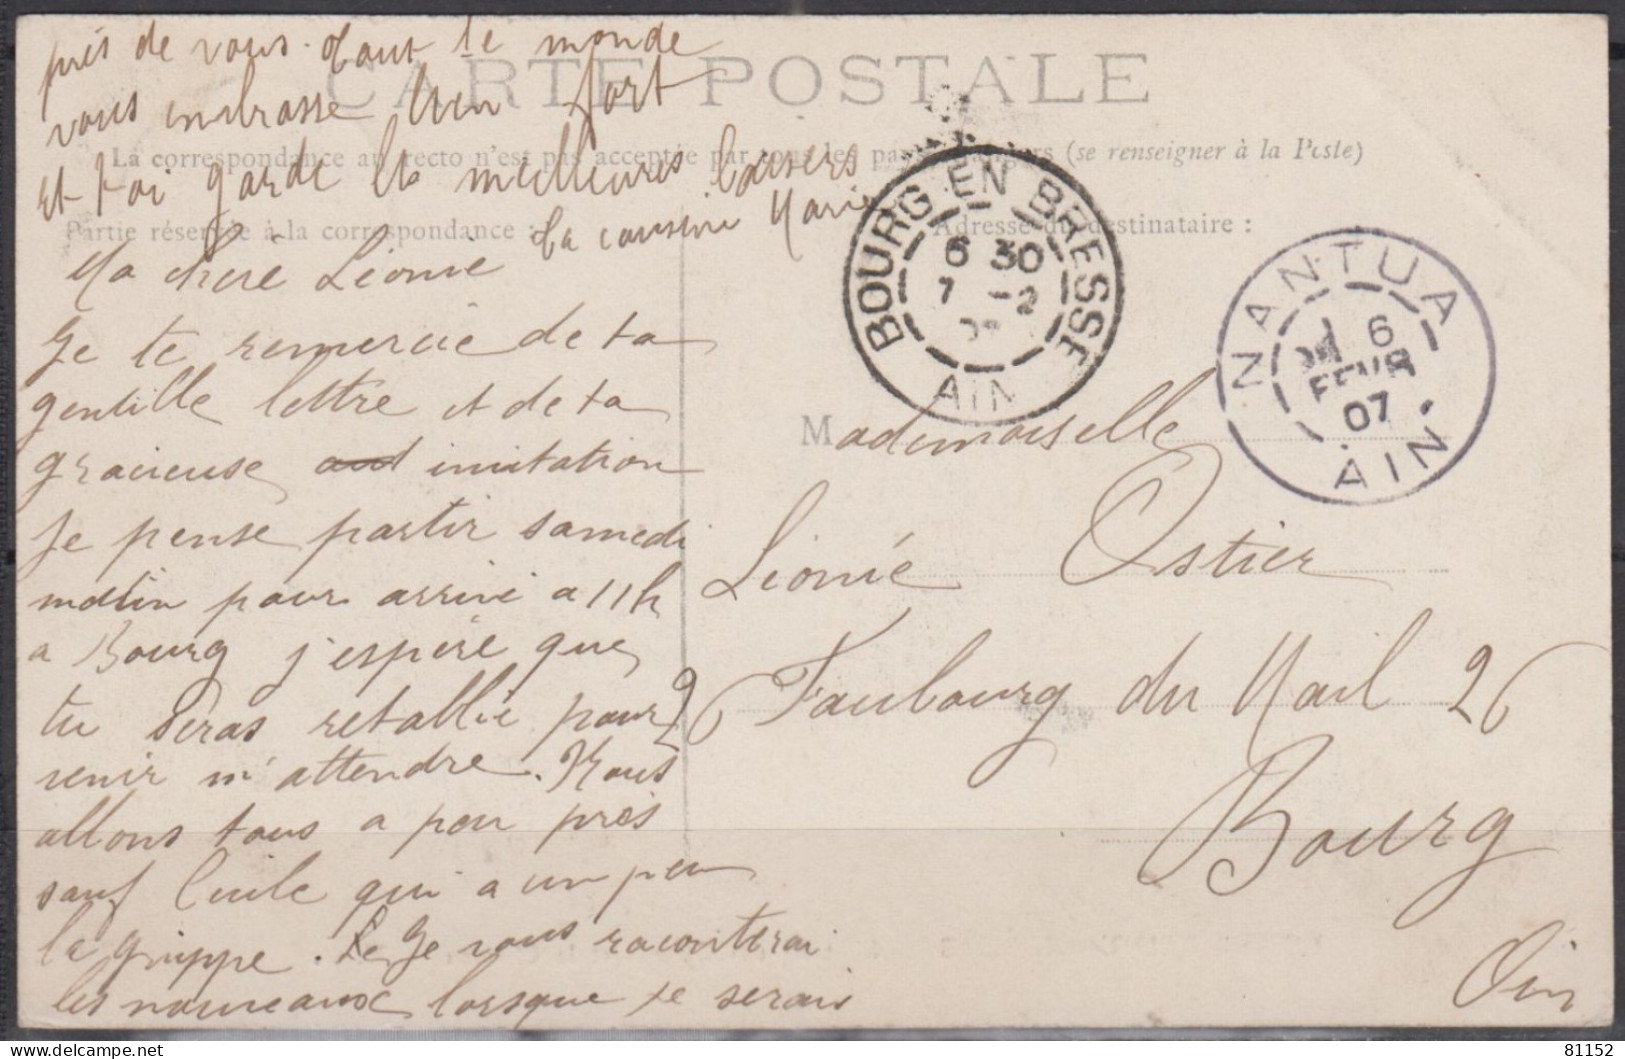 près de vous. Tout le monde
vous embrasse bien fort
et toi garde les meilleures baisers
Ta cousine Marie
CARTE POSTALE
La correspondance au recto n'est pas acceptée par tous les pays étrangers (se renseigner à la Poste)
Partie réservée à la correspondance :
Adresse du destinataire :
Ma chère Léonie
Je te remercie de ta
gentille lettre et de ta
gracieuse invitation
Je pense partir samedi
matin pour arrivé a 11h
a Bourg j'espère que
tu seras retablie pour
venir m'attendre. Nous
allons tous a peu près
sauf Cécile qui a un peu
la grippe. Je vous raconterai
les nouveaux lorsque je serais
BOURG EN BRESSE
6 30
7 -2
AIN
NANTUA
6
FEVR
07
AIN
Mademoiselle
Léonie Ostier
26 Faubourg du Mail 26
Bourg
Ain
delcampe.net
lulubourg01
81152